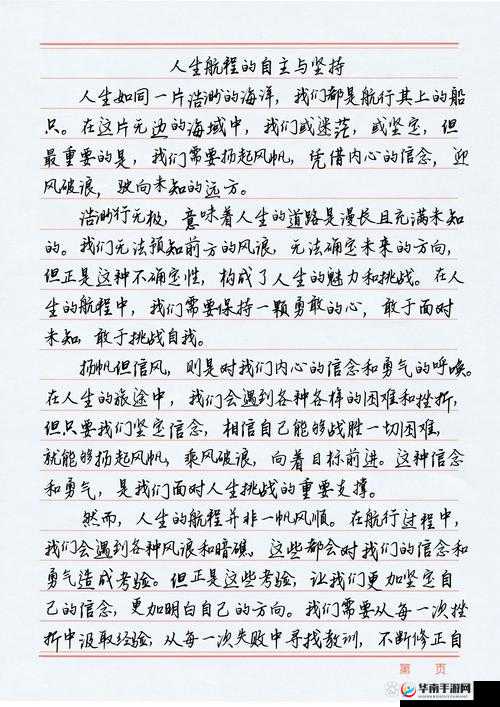 人生航程的自主与坚持
人生如同一片浩渺的海洋，我们都是航行其上的船
只。在这片无边的海域中，我们或迷茫，或坚定，但
最重要的是，我们需要扬起风帆，凭借内心的信念，迎
风破浪，驶向未知的远方。
浩渺行无极，意味着人生的道路是漫长且充满未知
的。我们无法预知前方的风浪，无法确定未来的方向，
但正是这种不确定性，构成了人生的魅力和挑战。在人
生的航程中，我们需要保持一颗勇敢的心，敢于面对
未知，敢于挑战自我。
扬帆但信风，则是对我们内心的信念和勇气的呼唤。
在人生的旅途中，我们会遇到各种各样的困难和挫折，
但只要我们坚定信念，相信自己能够战胜一切困难，
就能够扬起风帆，乘风破浪，向着目标前进。这种信念
和勇气，是我们面对人生挑战的重要支撑。
然而，人生的航程并非一帆风顺。在航行过程中，
我们会遇到各种风浪和暗礁，这些都会对我们的信念和
勇气造成考验。但正是这些考验，让我们更加坚定自
己的信念，更加明白自己的方向。我们需要从每一次挫
折中汲取经验，从每一次失败中寻找教训，不断修正自
第 页
华南手游网